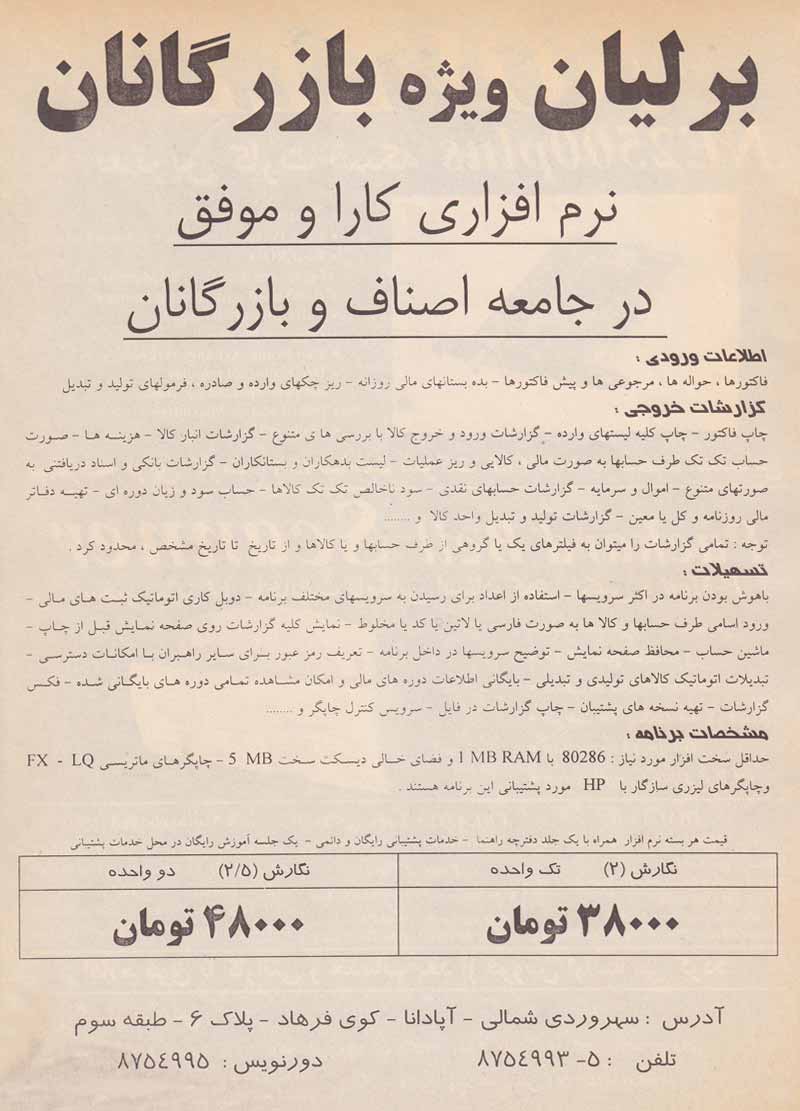 برلیان ویژه بازرگانان
نرم افزاری کارا و موفق
در جامعه اصناف و بازرگانان
اطلاعات ورودی :
فاکتورها ، حواله ها ، مرجوعی ها و پیش فاکتورها - بده بستانهای مالی روزانه - ریز چکهای وارده و صادره ، فرمولهای تولید و تبدیل
گزارشات خروجی :
چاپ فاکتور - چاپ کلیه لیستهای وارده - گزارشات ورود و خروج کالا با بررسی ها ی متنوع - گزارشات انبار کالا - هزینه ها - صورت
حساب تک تک طرف حسابها به صورت مالی ، کالایی و ریز عملیات - لیست بدهکاران و بستانکاران - گزارشات بانکی و اسناد دریافتنی به
صورتهای متنوع - اموال و سرمایه - گزارشات حسابهای نقدی - سود ناخالص تک تک کالاها - حساب سود و زیان دوره ای - تهیه دفاتر
مالی روزنامه و کل یا معین - گزارشات تولید و تبدیل واحد کالا و ........
توجه : تمامی گزارشات را میتوان به فیلترهای یک یا گروهی از طرف حسابها و یا کالاها و از تاریخ تا تاریخ مشخص ، محدود کرد .
تسهیلات :
باهوش بودن برنامه در اکثر سرویسها - استفاده از اعداد برای رسیدن به سرویسهای مختلف برنامه - دوبل کاری اتوماتیک ثبت های مالی -
ورود اسامی طرف حسابها و کالا ها به صورت فارسی یا لاتین با کد یا مخلوط - نمایش کلیه گزارشات روی صفحه نمایش قبل از چاپ -
ماشین حساب - محافظ صفحه نمایش - توضیح سرویسها در داخل برنامه - تعریف رمز عبور برای سایر راهبران با امکانات دسترسی -
تبدیلات اتوماتیک کالاهای تولیدی و تبدیلی - بایگانی اطلاعات دوره های مالی و امکان مشاهده تمامی دوره های بایگانی شده - فکس
گزارشات - تهیه نسخه های پشتیبان - چاپ گزارشات در فایل - سرویس کنترل چاپگر و ........
مشخصات برنامه :
حداقل سخت افزار مورد نیاز : 80286 با 1 MB RAM و فضای خالی دیسکت سخت 5 MB - چاپگرهای ماتریسی FX - LQ
وچاپگرهای لیزری سازگار با HP مورد پشتیبانی این برنامه هستند .
قیمت هر بسته نرم افزار همراه با یک جلد دفترچه راهنما - خدمات پشتیبانی رایگان و دائمی - یک جلسه آموزش رایگان در محل خدمات پشتیبانی
نگارش (۲) تک واحده
نگارش (۲/۵) دو واحده
۳۸۰۰۰ تومان
۴۸۰۰۰ تومان
آدرس : سهروردی شمالی - آپادانا - کوی فرهاد - پلاک ۶ - طبقه سوم
تلفن : ۵- ۸۷۵۴۹۹۳ دورنویس : ۸۷۵۴۹۹۵